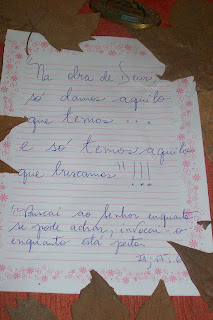 "Na obra de Deus
só damos aquilo
que temos ...
e só temos aquilo
que buscamos"!!!...
"Buscai ao Senhor enquanto
se pode achar, invocai-o
enquanto está perto.
Is,